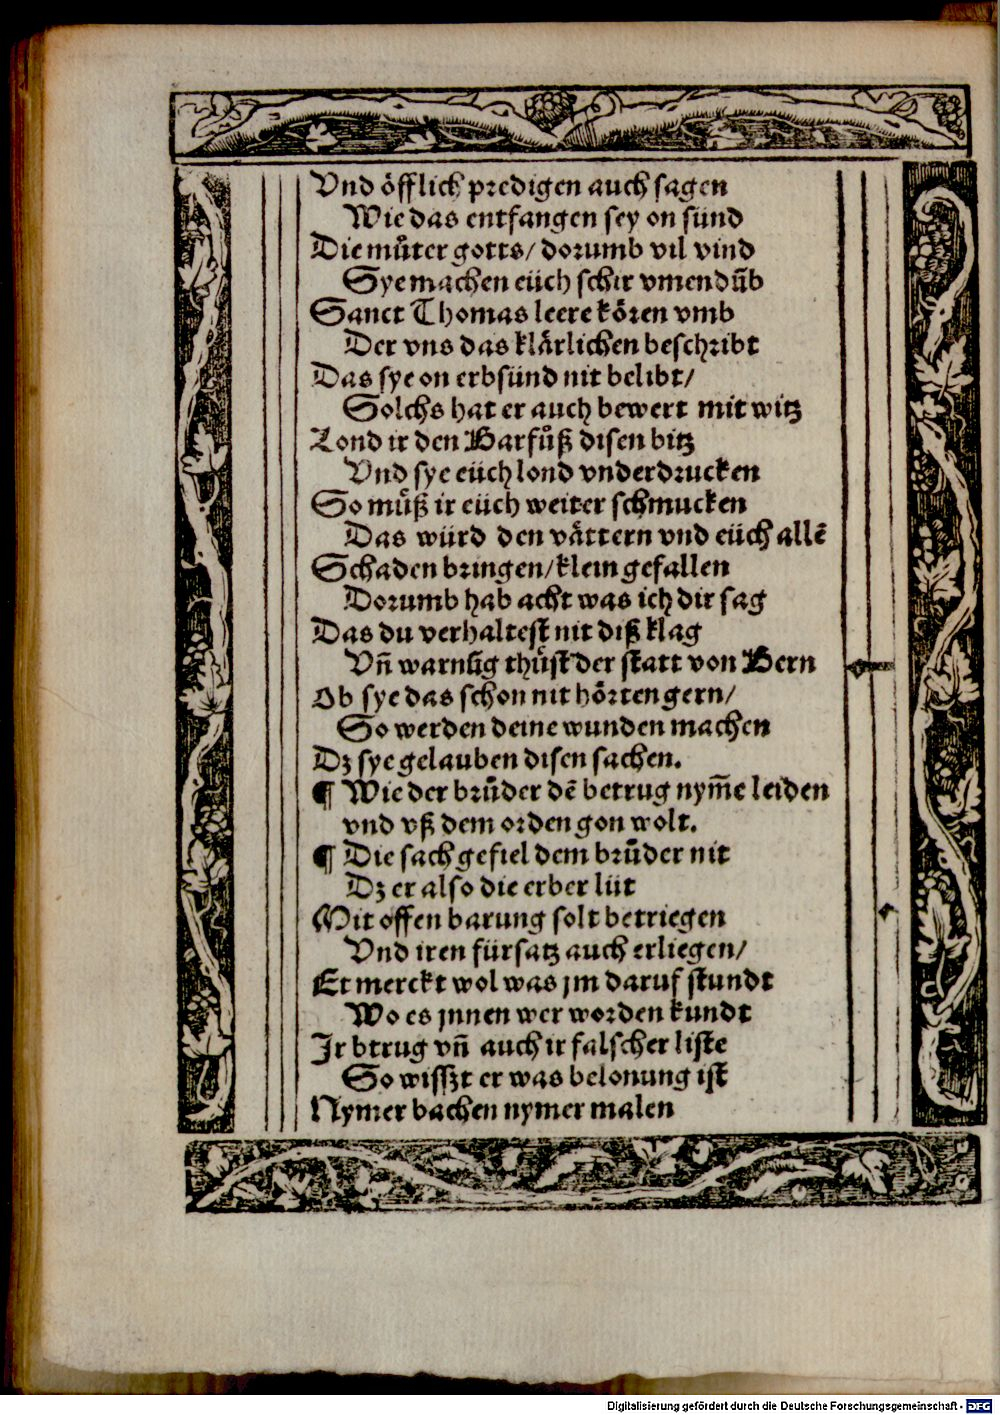 Vnd öfflich predigen auch sagen
Wie das entfangen sey on sünd
Die muͦter gotts/ dorumb vil vind
Sye machen eüch schir vmendūb
Sanct Thomas leere kören vmb
Der vns das klärlichen beschribt
Das sye on erbsünd nit belibt/
Solchs hat er auch bewert mit witz
Lond ir den Barfuͦß disen bitz
Vnd sye eüch lond vnderdrucken
So muͤß ir eüch weiter schmucken
Das würd den vättern vnd eüch allē
Schaden bringen/ klein gefallen
Dorumb hab acht was ich dir sag
Das du verhaltest nit diß klag
Vn̄ warnūg thuͤst der statt von Bern
Ob sye das schon nit hörten gern/
So werden deine wunden machen
Dz sye gelauben disen sachen.
¶ Wie der bruͦder dē betrug nym̄e leiden
vnd vß dem orden gon wolt.
¶ Die sach gefiel dem bruͦder nit
Dz er also die erber lüt
Mit offen barung solt betriegen
Vnd iren fürsatz auch erliegen/
Er merckt wol was jm daruf stundt
Wo es jnnen wer worden kundt
Jr btrug vn̄ auch ir falscher liste
So wisszt er was belonung ist
Nymer bachen nymer malen
Digitalisierung gefördert durch die Deutsche Forschungsgemeinschaft - DFG